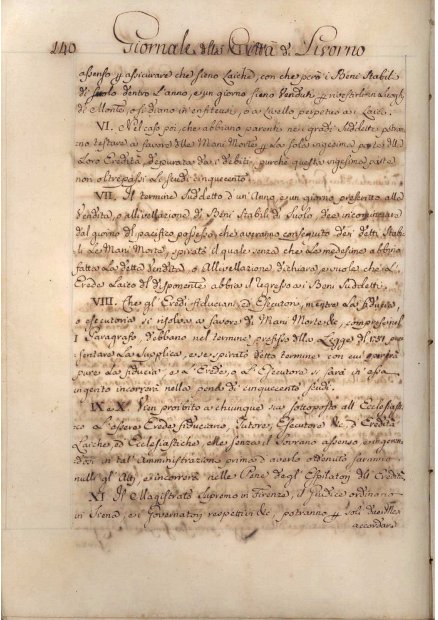 140 Giornale della Città di Livorno
assenso per assicurare che sieno Laiche, con che però i Beni Stabili
di Suolo dentro l'anno, e un giorno sieno Venduti, per rinvestirsi in Luoghi
di Monte, o si diano in enfiteusi, o a Livello perpetuo ai Laici.
VI. Nel caso poi, che abbiano parenti nei gradi Suddetti potranno
testare a favore delle Mani Morte per la sola vigesima parte della
Loro Eredità, depurata dai debiti, purchè questa vigesima parte
non oltrepassi Li scudi cinquecento.
VII. Il termine Suddetto d'un Anno, e un giorno prescritto alla
Vendita, o allivellazione di Beni Stabili di Suolo, dee incominciare
dal giorno del pacifico possesso, che averanno conseguito dei detti Stabili
Le Mani Morte, spirato il quale senza che La medesima abbino
fatta La detta Vendita, o Allivellazione dichiara, e vuole che L'
Erede Laico del disponente abbia il regresso ai Beni Suddetti.
VIII. Che gl'Eredi fiduciari, ed Esecutori, mentre La fiducia,
o esecutoria si risolva a favore di Mani Morte &c, comprese nel
I Paragrafo, debbano nel termine prefisso dalla Legge del 1751 pre
sentare La Supplica, e se spirato detto termine con cui
pure La fiducia e L'Erede, o L'Esecutore si sarà in essa
ingerito incorrerà nella pena di cinquecento scudi.
IX e X. Vien proibito a chiunque sia sottoposto all'Ecclesiasti
co L'essere Erede fiduciario, Tutore, Esecutore &c, d'Eredità
Laiche, ed Ecclesiastiche, e se senza il Sovrano assenso
in tal'Amministrazione prima d'averlo ottenuto saranno
nulli gl'Atti, e incorrerà nelle Pene degl'Espilatori dell'Eredità.
XI. Il Magistrato Supremo in Firenze, il Giudice ordinario
in Siena, e i Governatori respettivi &c, potranno per soli dieci Mesi
accordare